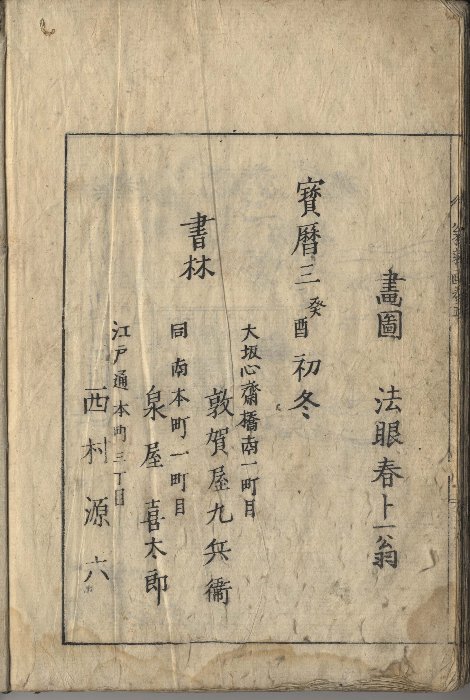 畫圖　法眼春卜一翁
寳曆三癸酉初冬
書林
大坂心齋橋南一町目
敦賀屋九兵衞
同南本町一町目
泉屋喜太郎
江戸通本町三丁目
西村源六